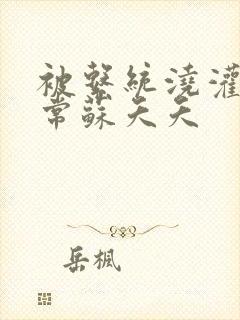 被繫統澆灌
常蘇夭夭
岳楓